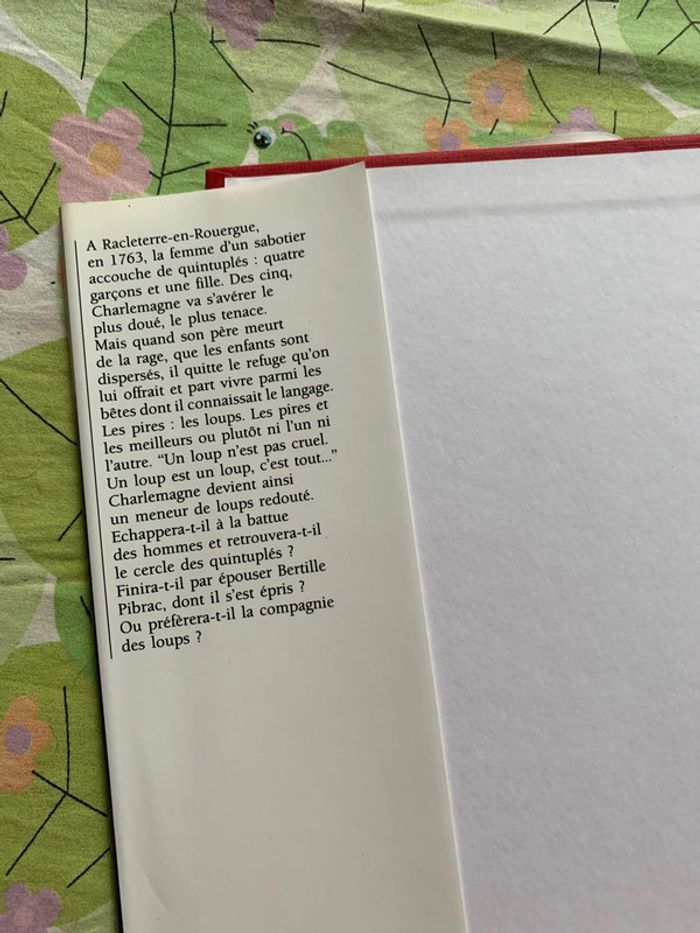 A Racleterre-en-Rouergue,
en 1763, la femme d'un sabotier
accouche de quintuplés : quatre
garçons et une fille. Des cinq,
Charlemagne va s'avérer le
plus doué, le plus tenace.
Mais quand son père meurt
de la rage, que les enfants sont
dispersés, il quitte le refuge qu'on
lui offrait et part vivre parmi les
bêtes dont il connaissait le langage.
Les pires : les loups. Les pires et
les meilleurs ou plutôt ni l'un ni
l'autre. “Un loup n'est pas cruel.
Un loup est un loup, c'est tout...”
Charlemagne devient ainsi
un meneur de loups redouté.
Echappera-t-il à la battue
des hommes et retrouvera-t-il
le cercle des quintuplés ?
Finira-t-il par épouser Bertille
Pibrac, dont il s'est épris ?
Ou préfèrera-t-il la compagnie
des loups ?